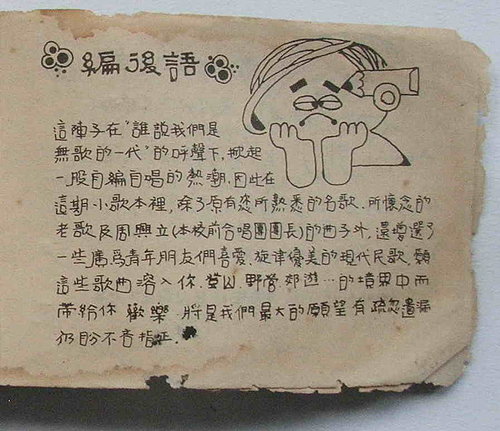 編後語
這陣子在"誰說我們是
無歌的一代"的呼聲下,掀起
一股自編自唱的熱潮,因此在
這期小歌本裡,除了原有您所熟悉的名歌、所懷念的
老歌及周興立(本校前合唱團團長)的曲子外,還增選了
一些廣為青年朋友們喜愛,旋律優美的現代民歌,願
這些歌曲溶入你,登山、野營、郊遊…的境界中而
帶給你 歡樂,將是我們最大的願望,有疏忽遺漏
仍盼不吝指正.